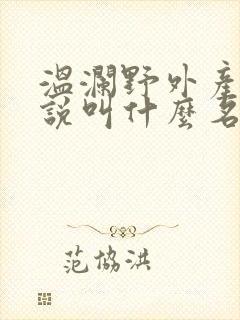 溫瀾野外產
說叫什麼名
范協洪